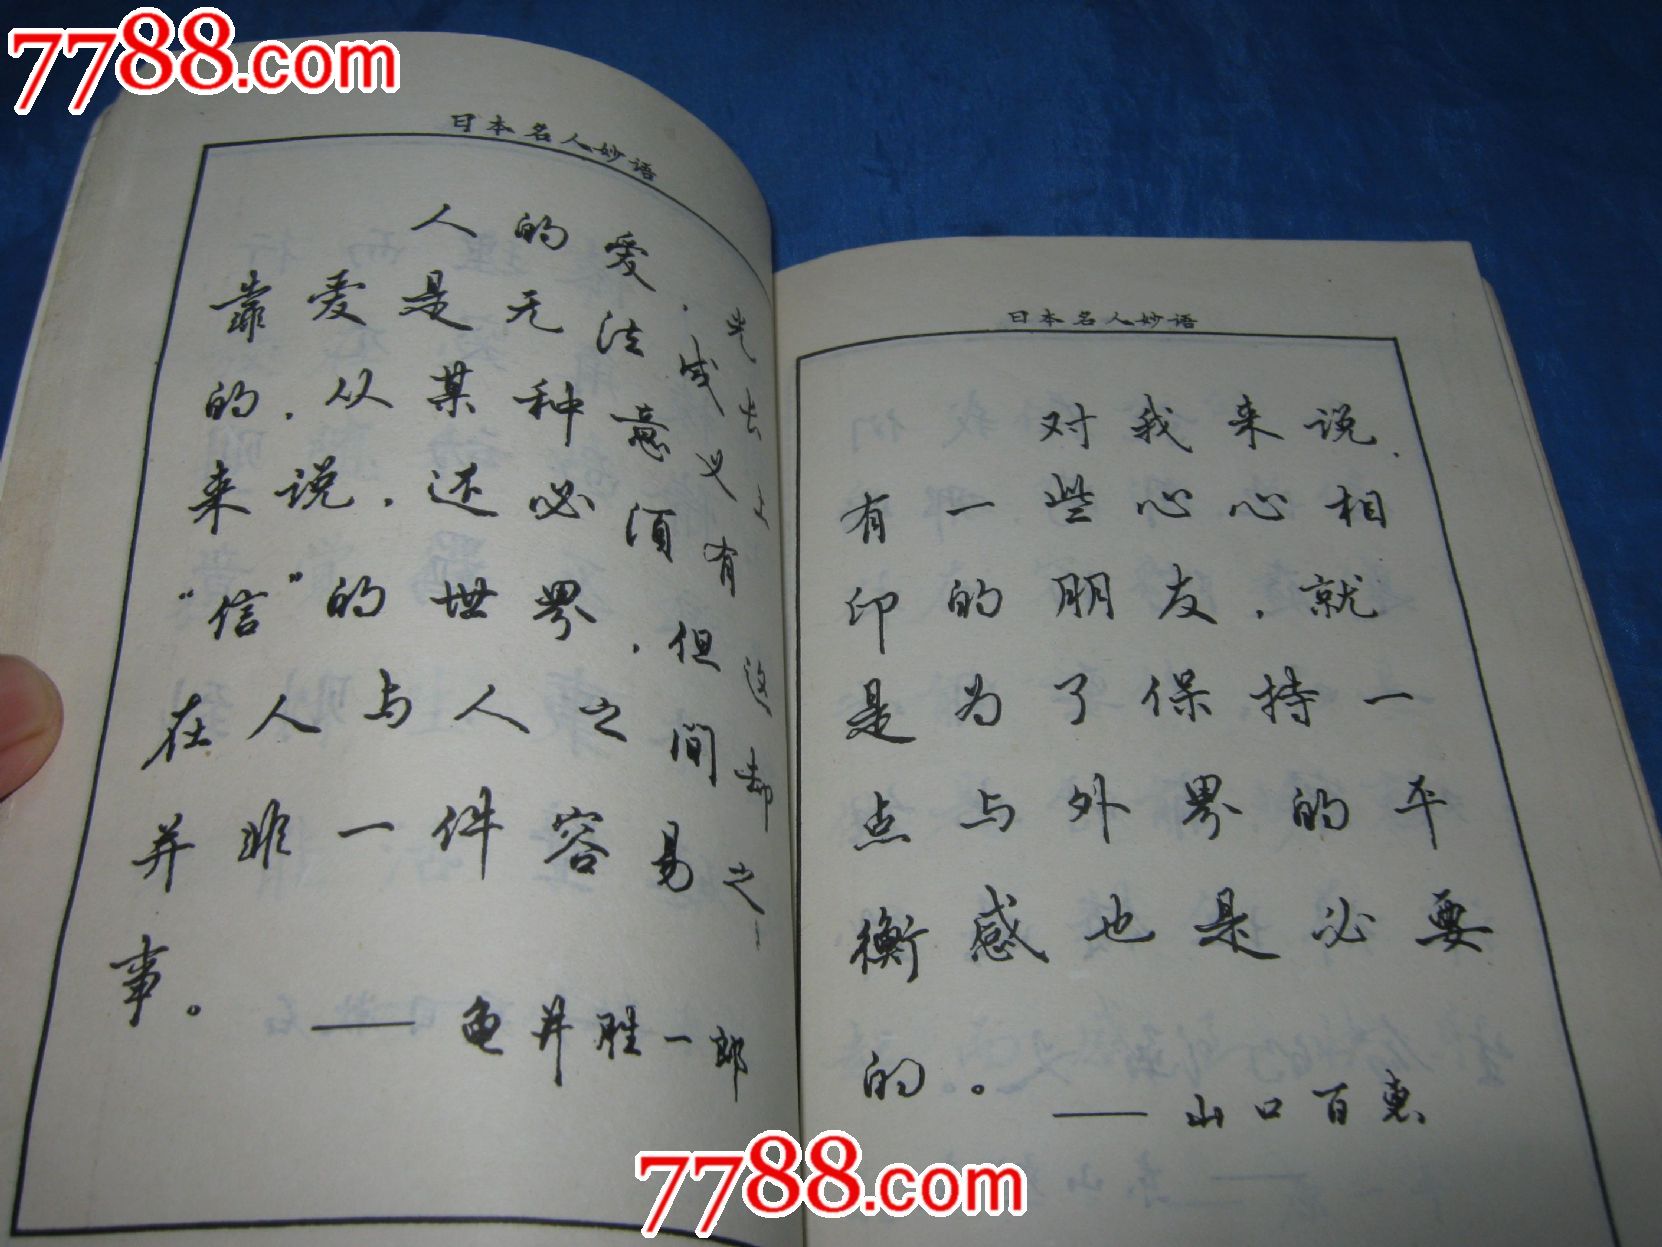 日本名人妙语
人的爱，光
靠爱是无法成立
的，从某种意义上
来说，还必须有
“信”的世界，但这
在人与人之间却
并非一件容易之
事。
——龟井胜一郎
日本名人妙语
对我来说，
有一些心心相
印的朋友，就
是为了保持一
点与外界的平
衡感也是必要
的。
——山口百惠
7788.com
7788.com